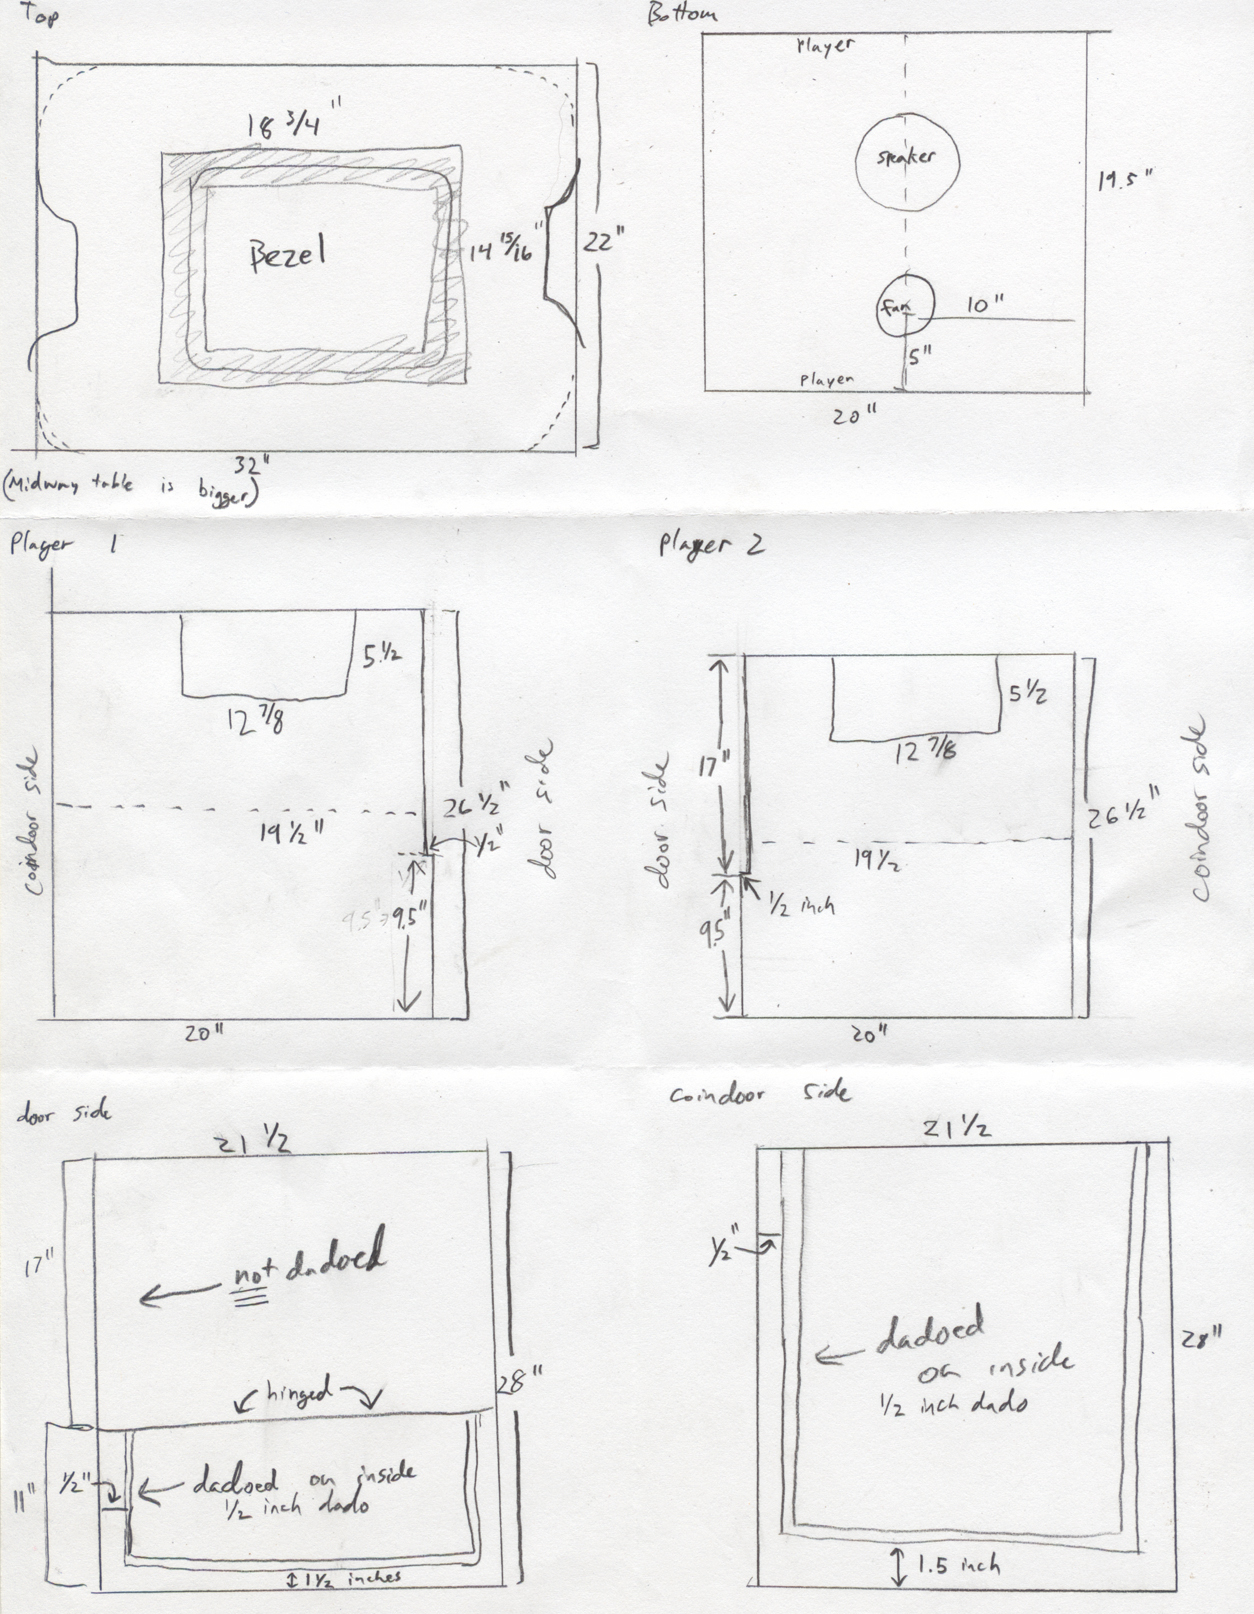 Top
18 3/4"
Bezel
14 15/16"
22"
32"
(Midway table is bigger)
Bottom
Player
speaker
19.5"
fan
10"
5"
Player
20"
Player 1
5 1/2
12 7/8
coindoor side
door side
26 1/2"
19 1/2"
1/2"
9.5" → 9.5"
20"
Player 2
5 1/2
12 7/8
17"
door side
coindoor side
26 1/2"
19 1/2
1/2 inch
9.5"
20"
door side
21 1/2
17"
not dadoed
hinged
28"
11"
1/2"
dadoed on inside
1/2 inch dado
1 1/2 inches
coindoor side
21 1/2
1/2"
dadoed
on inside
1/2 inch dado
28"
1.5 inch